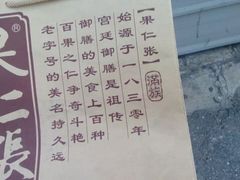 【果仁张】
满族
始源于一八三零年
宫廷御膳是祖传
御膳的美食上百种
百果之仁争奇斗艳
老字号的美名持久远
果仁張®